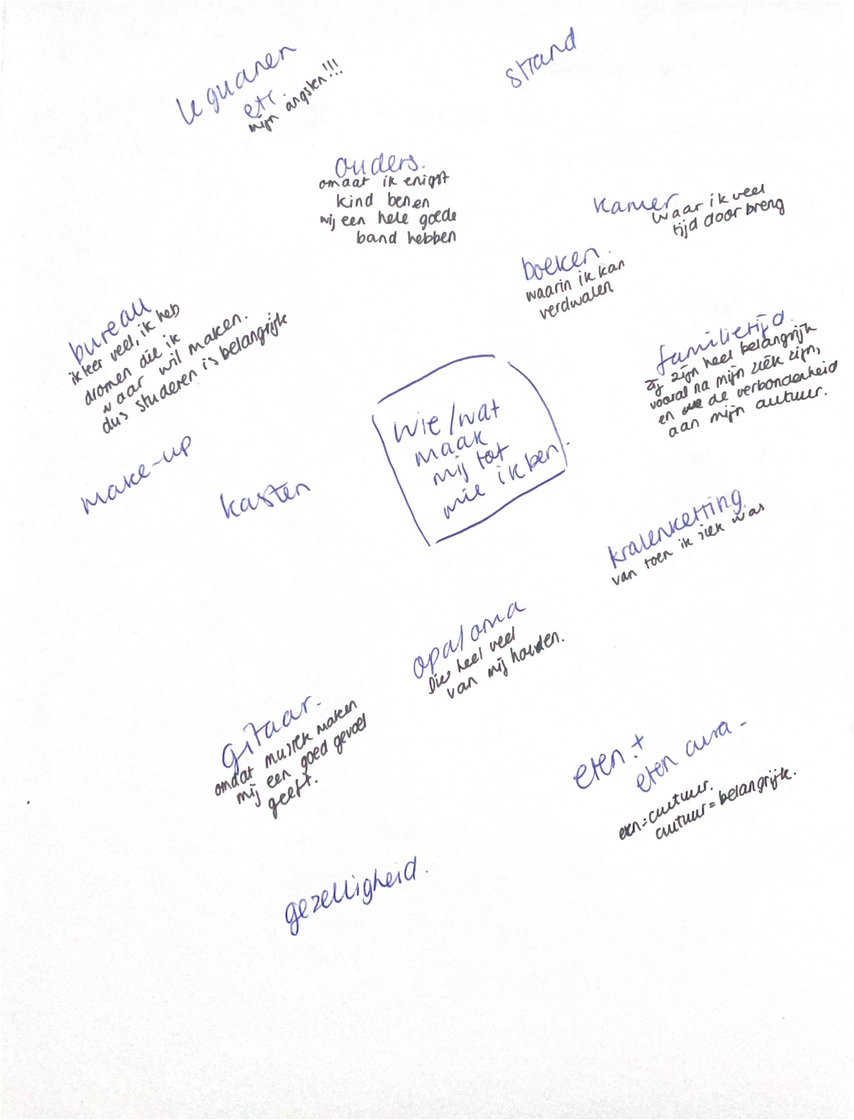 leguanen
etc.
mijn angsten!!!
strand
ouders.
omdat ik enigst
kind ben en
wij een hele goede
band hebben
kamer
waar ik veel
tijd door breng
boeken.
waarin ik kan
verdwalen
bureau
ik leer veel, ik heb
dromen die ik
waar wil maken.
dus studeren is belangrijk
familietijd.
zij zijn heel belangrijk
vooral na mijn ziek zijn,
en de verbondenheid
aan mijn cultuur.
wie/wat
maak
mij tot
wie ik ben.
make-up
kasten
kralenketting
van toen ik ziek was
opa/oma
die heel veel
van mij houden.
gitaar.
omdat muziek maken
mij een goed gevoel
geeft.
eten. +
eten cura -
eten = cultuur.
cultuur = belangrijk.
gezelligheid.